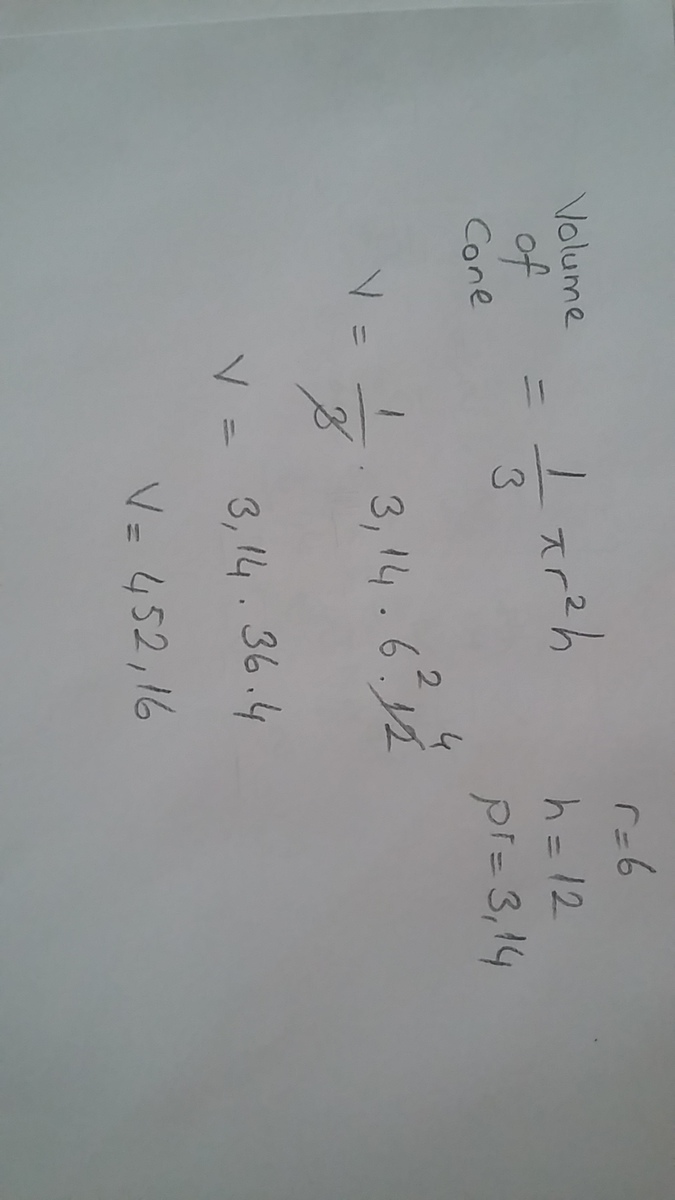 Volume of Cone = 1/3 πr²h
r=6
h=12
pi=3,14
V = 1/3 . 3,14 . 6² . 12 4
V = 3,14 . 36 . 4
V = 452,16